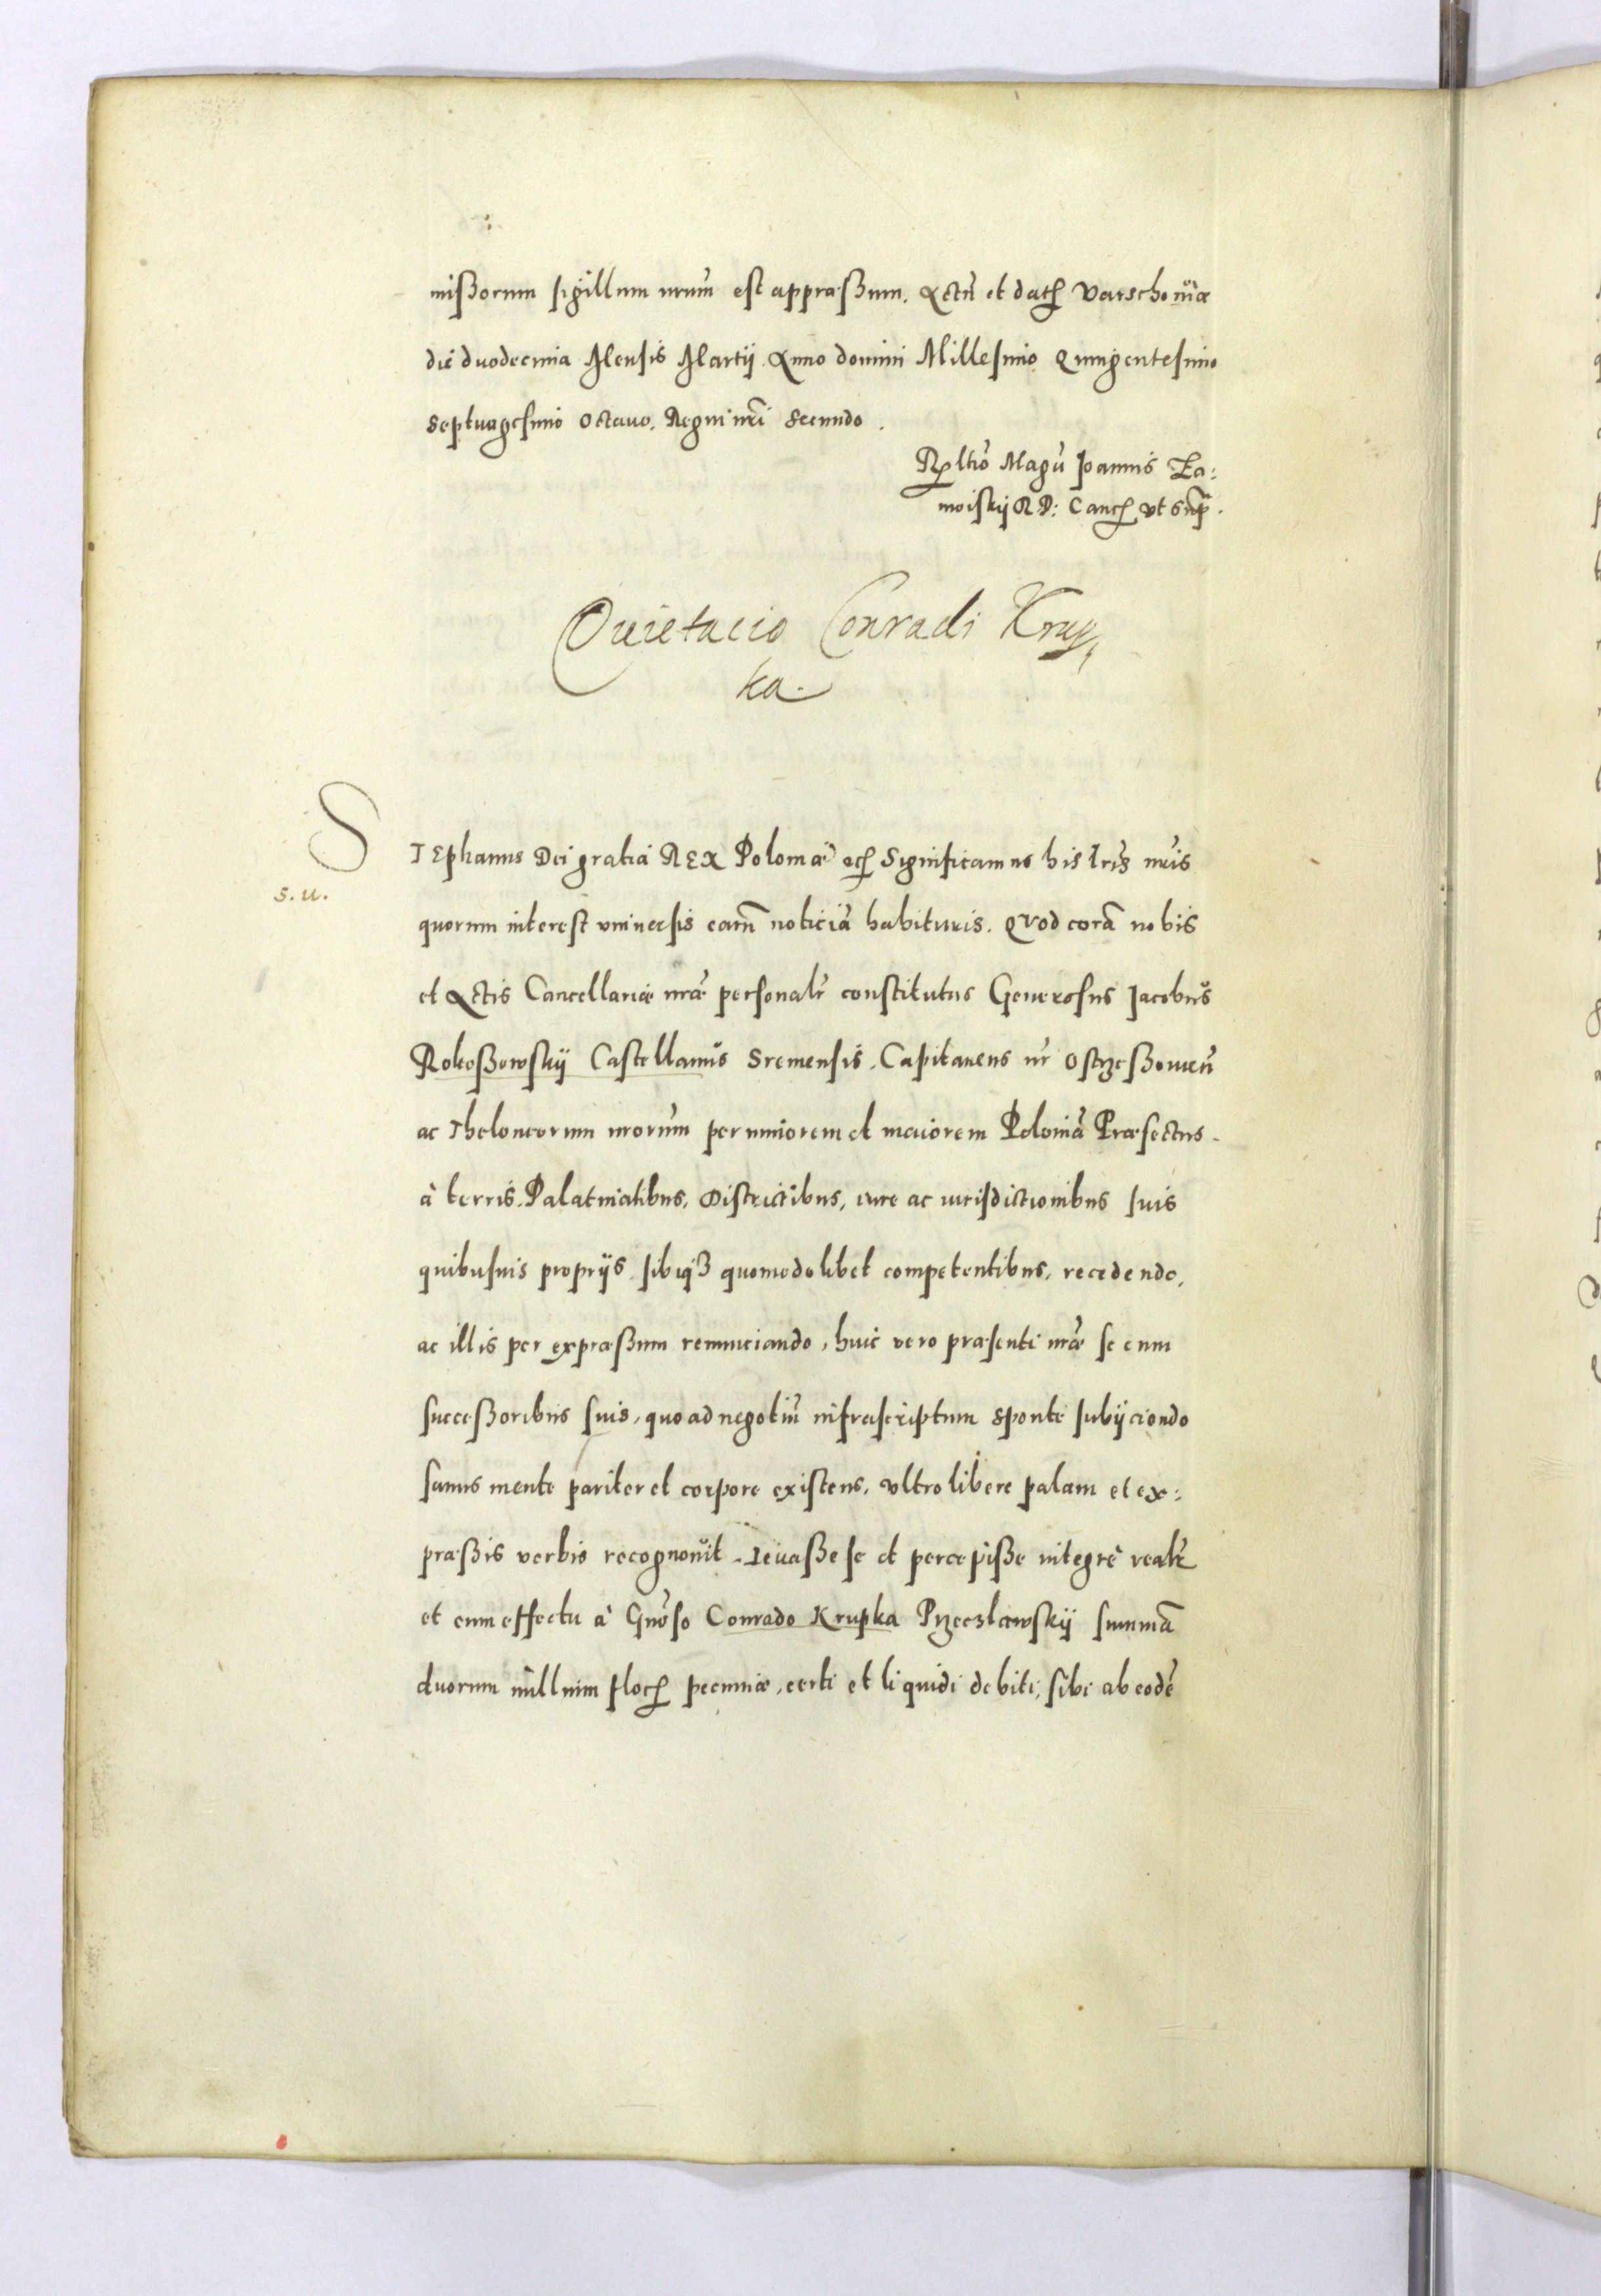 mißorum sigillum nrũm est appræßum. Actũ et datꝭ Varschoviæ
die duodecima Mensis Martij Anno domini Millesimo Quingentesimo
septuagesimo octauo. Regni nrĩ secundo.
Rꝑltio Magci Joannis Za:
moiskij R P: Cancꝭ vt sup̃.
Quietacio Conradi Krup,
ka.
STEphanus Dei gratia REX Poloniæ ecꝭ Significamus his lrĩs nrĩs
s. u.
quorum interest vniuersis earũ noticiã habituris. Quod corã nobis
et Actis Cancellariæ nrãe personalr̃ constitutus Generosus Jacobus
Rokoßowskij Castellanus Sremensis. Capitaneus nr̃ Ostrzeßouien̄
ac Theloneorum nrorũm per minorem et maiorem Poloniã Præfectus.
à terris, Palatinatibus, Districtibus, iure ac iurisdictionibus suis
quibusuis proprijs sibiqʒ quomodolibet competentibus, recedendo,
ac illis per expræßum renunciando, huic vero præsenti nrãe se cum
succeßoribus suis, quo ad negotiũ infrascriptum sponte subijciendo
sanus mente pariter et corpore existens, vltro libere palam et ex:
præßis verbis recognouit. Leuaße se et percepiße integrè realr̃
et cum effectu à Gnõso Conrado Krupka Przeczlawskij summã
duorum millium flocꝭ pecuniæ, certi et liquidi debiti, sibi ab eodẽ